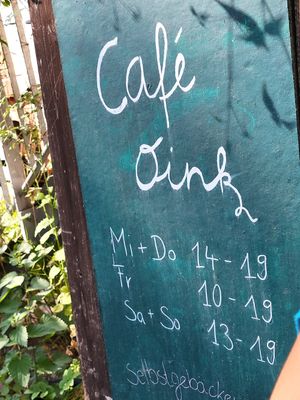 Café
Oink
Mi + Do 14 - 19
Fr 10 - 19
Sa + So 13 - 19